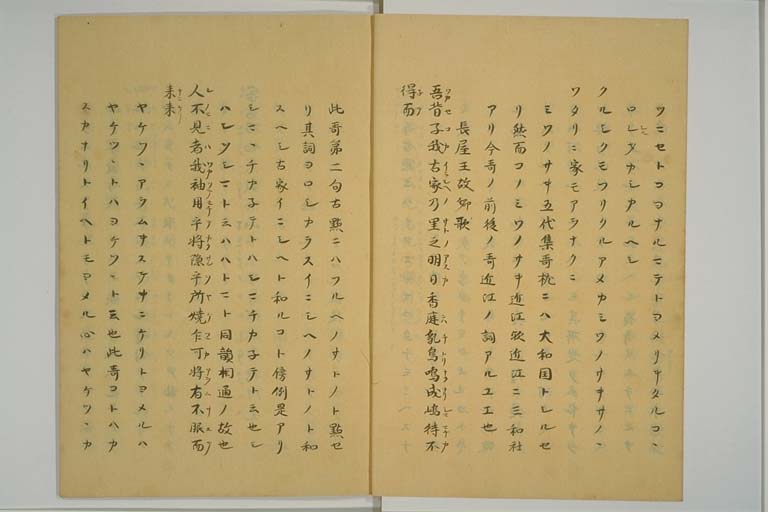 ツニセトコヽナルニテトヨメリサタルコン
ロシタカシカルヘシ
クルシクモフリクルアメカミワノサキサノン
ワタリニ家モアラナクニ
ミワノサキ五代集哥枕ニハ大和国トシルセ
リ然而コノミワノサキ近江欤近江ニ三和社
アリ今哥ノ前後ノ哥近江ノ詞アルユエ也
長屋王故郷歌
吾背子我古家乃里之明日香庭乳鳥鳴成嶋待不
得而
此哥第二句古點ニハフルヘノサトノト點セ
リ其詞ヨロシカラスイニシヘノサトノト和
スヘシ古家イニシヘト和ルコト傍例是アリ
シマヽチカ子テトハシマチカ子テト云也シ
ハシツシマトミハハトマト同韻相通ノ故也
人不見者我袖用手将隠乎所焼乍可将有不服而
来来
ヤケツヽアラムキステキニケリトヨメルハ
ヤケツヽトハヨケツヽト云也此哥コトハカ
スカナリトイヘトモヨメル心ハヤケツヽカ